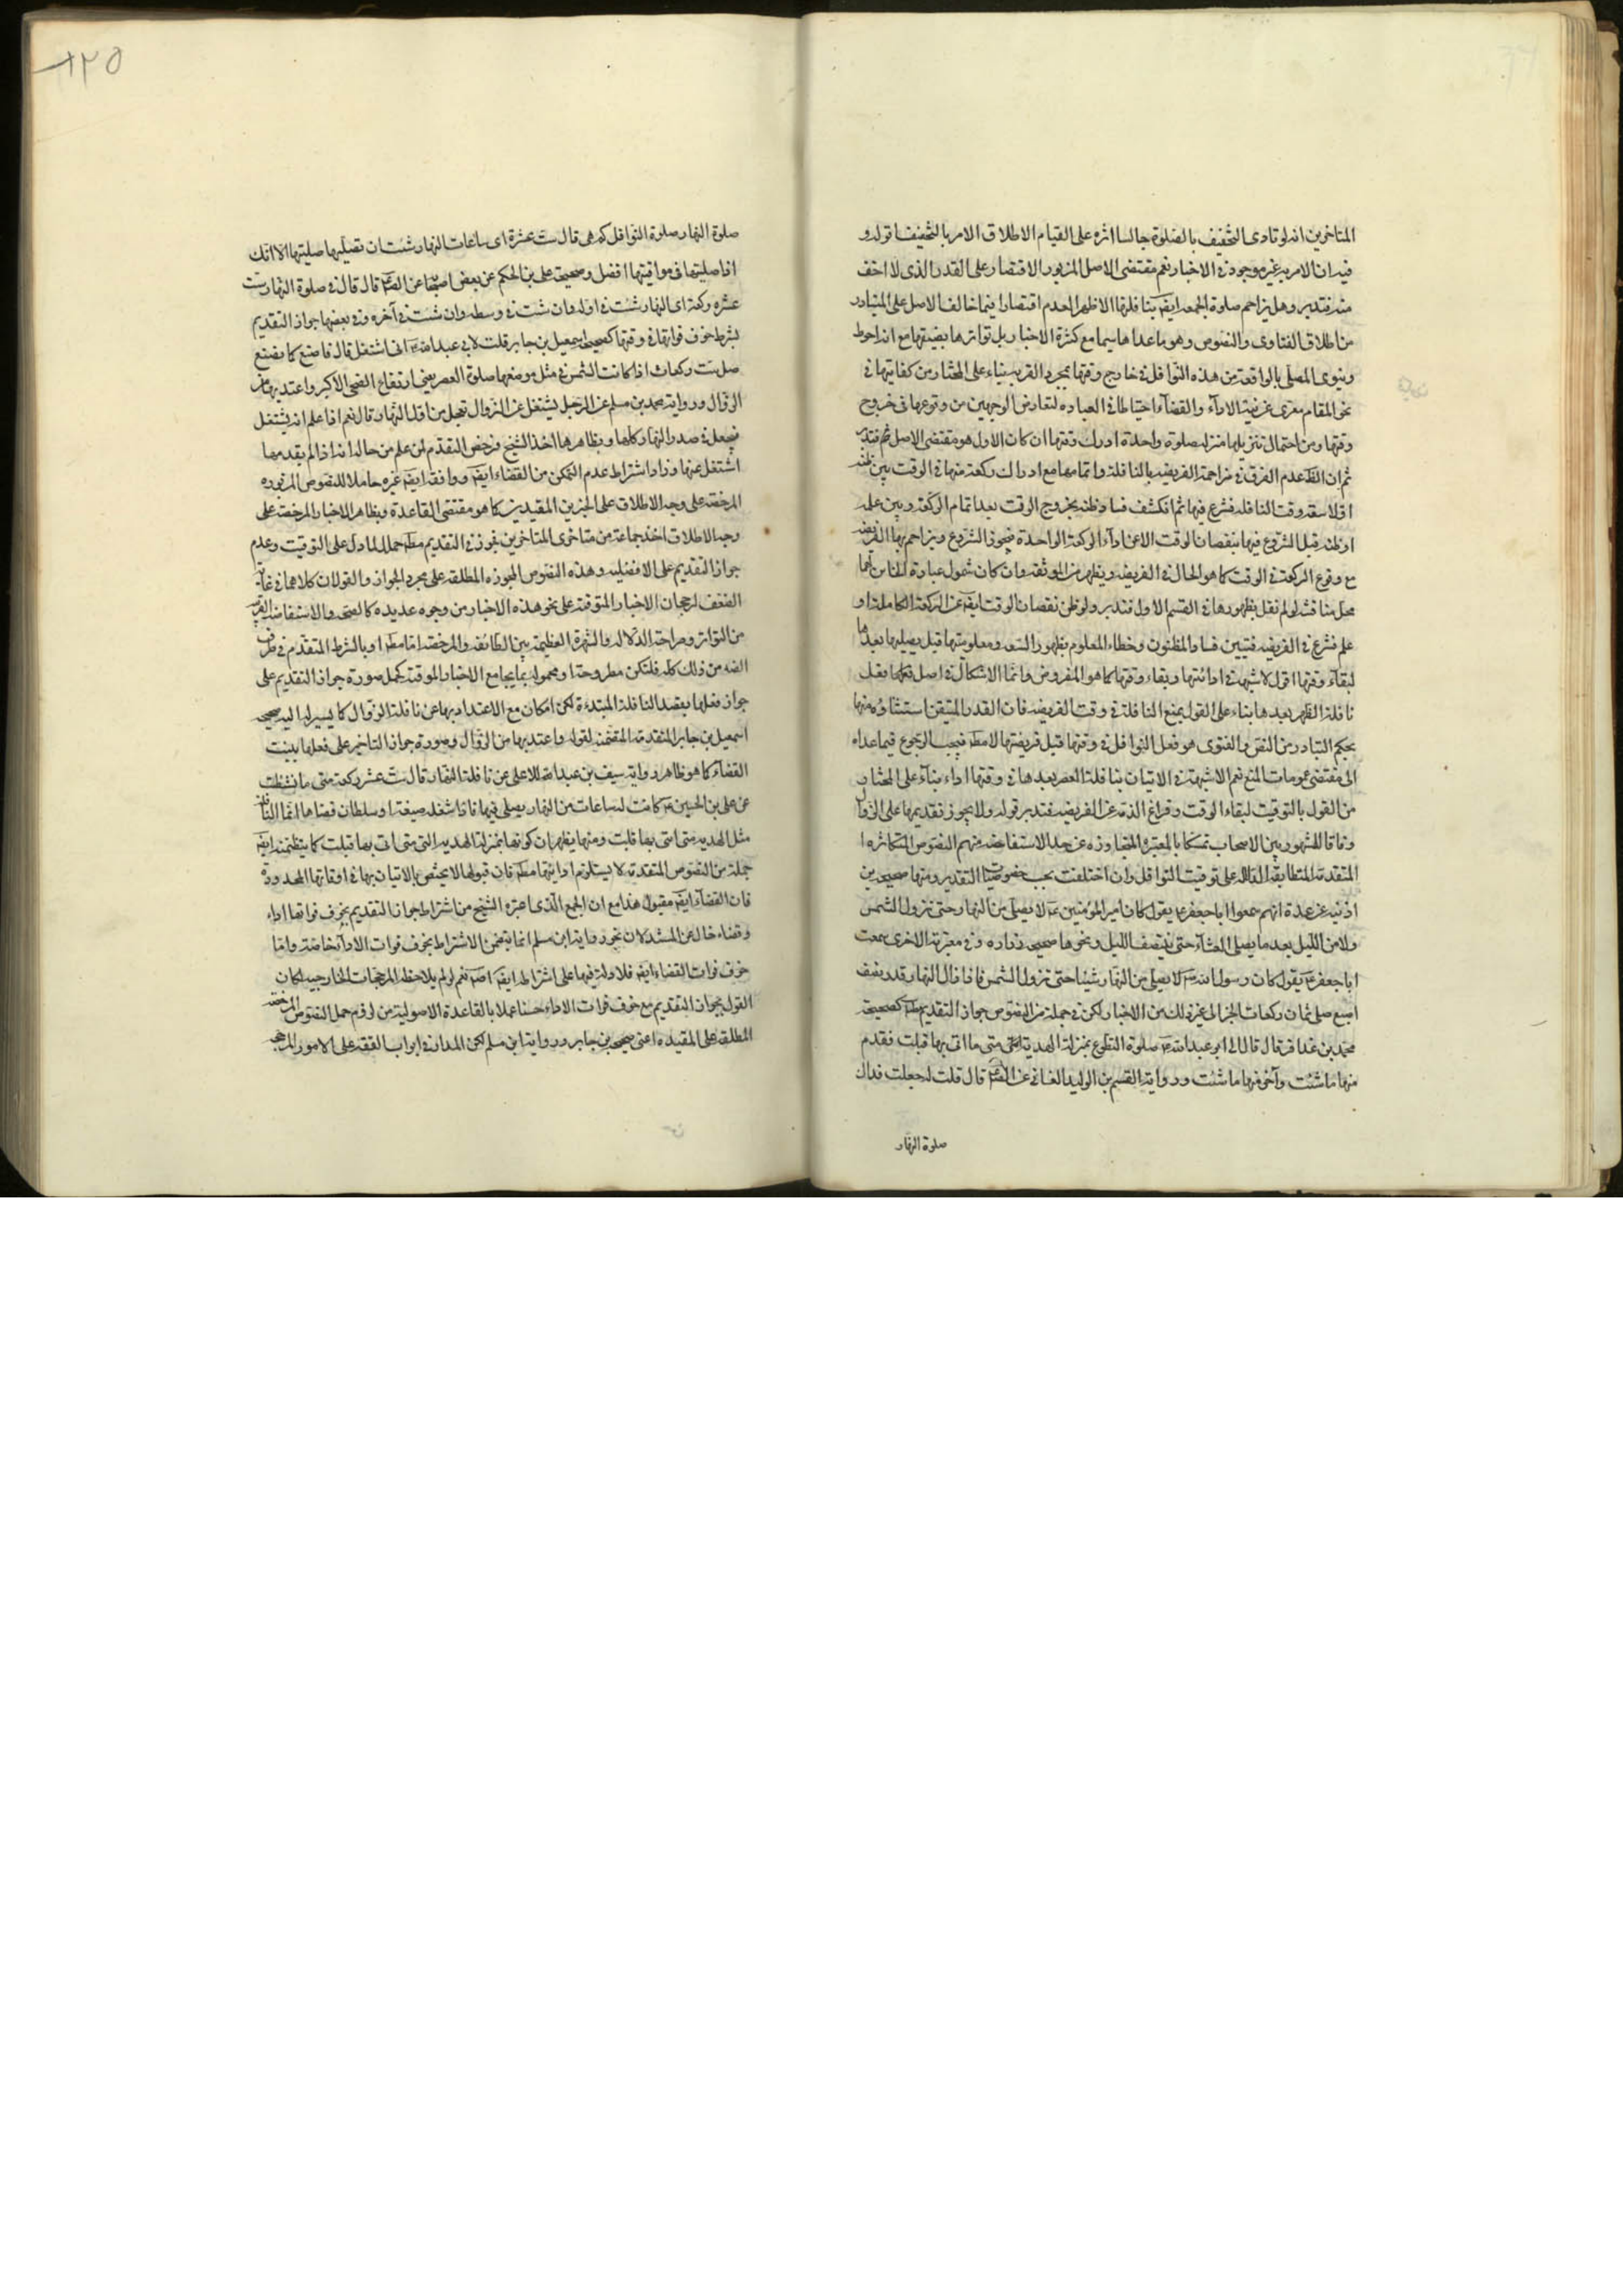 المتاخرين انه لو تادى التخفيف بالصلوة جالسا اثره على القيام الاطلاق الامر بالتخفيف قوله و
فيه ان الامر به غير موجود في الاخبار نعم مقتضى الاصل المزبور الاقتصار على القدر الذى لا اخف
منه فتدبر وهل يزاحم صلوة الجمعه ايضا بنافلتها الاظهر العدم اقتصارا فيما خالف الاصل على المتبادر
من اطلاق الفتاوى والنصوص وهو ما عداها سيما مع كثرة الاخبار بل تواترها بضيقها مع انه احوط
وينوى المصلى بالواقعة من هذه النوافل في خارج وقتها مجرد القربه بناء على المختار من كفايتها في
نحو المقام معرى عن نية الاداء والقضاء احتياطا في العباده لتعارض الوجهين من وقوعها في خروج
وقتها ومن احتمال تنزيلها منزله صلوة واحدة ادرك وقتها ان كان الاول هو مقتضى الاصل ثم فتدبر
ثم ان الظ عدم الفرق في مزاحمة الفريضه بالنافلة واتمامها مع ادراك ركعة منها في الوقت بين ظنه
اولا سعة وقت النافله فشرع فيها ثم انكشف فساد ظنه بخروج الوقت بعد اتمام الركعة وبين علمه
او ظنه قبل الشروع فيها بنقصان الوقت الا عن اداء الركعة الواحدة فيجوز الشروع ويزاحم بها الفريضه
مع وقوع الركعة في الوقت كما هو الحال في الفريضه ويظهر من الموثقه وان كان شمول عبارة الماتن لهما
محل مناقشه لو لم نقل بظهورها في القسم الاول فتدبر ولو ظن نقصان الوقت ايضا عن الركعة الكاملة او
علم فشرع في الفريضه فتبين فساد المظنون وخطاء المعلوم بظهور السعه ومعلوميتها قبل يصليها بعدها
لبقاء وقتها اقول لا شبهة في ادائتها وبقاء وقتها كما هو المفروض وانما الاشكال في اصل فعلها بفعل
نافلة الظهر بعدها بناء على القول بمنع النافلة في وقت الفريضه فان القدر المتيقن استثناؤه منها
بحكم التبادر من النص والفتوى هو فعل النوافل في وقتها قبل فريضتها لا مطلقا فيجب الرجوع فيما عداه
الى مقتضى عمومات المنع نعم لا شبهة في الاتيان بنافلة العصر بعدها في وقتها اداء بناء على المختار
من القول بالتوقيت لبقاء الوقت وفراغ الذمة عن الفريضه فتدبر قوله ولا يجوز تقديمها على الزوال
وفاقا للمشهور بين الاصحاب تمسكا بالمعتبرة المتجاوزه عن حد الاستفاضه منهم النصوص المتكاثره
المتقدمه المتطابقه الداله على توقيت النوافل وان اختلفت بحسب خصوصيتها التقدير ومنها صحيحه بن
اذنيه عن عدة انهم سمعوا اباجعفر ع يقول كان امير المؤمنين ع لا يصلى من النهار حتى تزول الشمس
ولا من الليل بعد ما يصلى العشاء حتى ينتصف الليل ونحوها صحيحه زراره وفي معتبرته الاخرى سمعت
اباجعفر ع يقول كان رسول الله ص لا يصلى من النهار شيئا حتى تزول الشمس فاذا زال النهار قدر نصف
اصبع صلى ثمان ركعات الخ الى غير ذلك من الاخبار لكن في جملة من النصوص جواز التقديم مط كصحيحه
محمد بن عذافر قال قال لى ابو عبد الله ع صلوة التطوع بمنزلة الهدية متى ما اتى بها قبلت فقدم
منها ما شئت وآخر منها ما شئت ورواية القسم بن الوليد الغفانى عن الص قال قلت له جعلت فداك
صلوة النهار
١٢٥
صلوة النهار صلوة النوافل كم هى قال ست عشرة اى ساعات النهار شئت ان تصليها صليتها الا انك
اذا صليتها فى مواقيتها افضل وصحيحة على بن الحكم عن بعض اصحابنا عن الص قال قال فى صلوة النهار ست
عشره ركعة اى النهار شئت في اوله وان شئت في وسطه وان شئت في آخره وفي بعضها جواز التقديم
بشرط خوف فواتها في وقتها كصحيحة اسمعيل بن جابر قلت لابى عبد الله ع انى اشتغل قال فاصنع كما نصنع
صل ست ركعات اذا كانت الشمس في مثل موضعها صلوة العصر يعنى ارتفاع الضحى الاكبر واعتد بها من
الزوال ورواية محمد بن مسلم عن الرجل يشتغل عن الزوال تعجل من اول النهار قال نعم اذا علم انه يشتغل
فيعجل في صدر النهار كلها وبظاهرها اخذ الشيخ ورخص التقدم لمن علم من حاله انه اذا لم يقدمها
اشتغل عنها وزاد اشتراط عدم التمكن من القضاء ايضا ووافقه ايضا غيره حاملا للنصوص المزبوره
المرخصة على وجه الاطلاق على الخبرين المقيدين كما هو مقتضى القاعدة وبظاهر الاخبار المرخصة على
وجه الاطلاق اخذ جماعة من متاخرى المتاخرين فجوزنى التقديم مط حملا لما دل على التوقيت وعدم
جواز التقديم على الافضليه وهذه النصوص المجوزه المطلقه على مجرد الجواز والقولان كلاهما في غاية
الضعف لرجحان الاخبار الموقتة على نحو هذه الاخبار من وجوه عديده كالصحة والاستفاضه القريبه
من التواتر وصراحة الدلاله والشهرة العظيمه بين الطائفه والمرخصة اما مط او بالشرط المتقدم في طرف
الضد من ذلك كله فلتكن مطروحة او محموله بما يجامع الاخبار الموقتة كحمل صورة جواز التقديم على
جواز فعلها بقصد النافلة المبتدءة لكن امكان مع الاعتداد بها عن نافلة الزوال كما يسير اليه صحيحه
اسمعيل بن جابر المتقدمة المتضمنه لقوله واعتد بها من الزوال وصورة جواز التاخير على فعلها بنيت
القضاء كما هو ظاهر رواية سيف بن عبد الاعلى عن نافلة النهار قال ست عشر ركعة متى ما نشطت
عن على بن الحسين ع كانت له ساعات من النهار يصلى فيها فاذا شغله ضيعة او سلطان قضاها انما النافله
مثل الهديه متى اتى بها قبلت ومنها يظهر ان كونها بمنزلة الهديه التى متى اتى بها قبلت كما يتظمنه ايضا
جملة من النصوص المتقدمه لا يستلزم ادائيتها مط فان قبولها لا يختص بالاتيان بها في اوقاتها المحدودة
فان القضاء ايضا مقبول هذا مع ان الجمع الذى اعبره الشيخ من اشتراط جواز التقديم بخوف فواتها اداء
وقضاء خال عن المستند لان نحو رواية ابن مسلم انما يتضمن الاشتراط بخوف فوات الاداء خاصة واما
خوف فوات القضاء ايضا فلا دلالة فيها على اشتراطه ايضا اصلا نعم لو لم يلاحظ المرجحات الخارجيه لكان
القول بجواز التقديم مع خوف فوات الاداء حسنا عملا بالقاعدة الاصوليه من لزوم حمل النصوص المرخصه
المطلقه على المقيده اعنى صحيحه بن جابر ورواية ابن مسلم لكن المدار في ابواب الفقه على الامور المرجحه